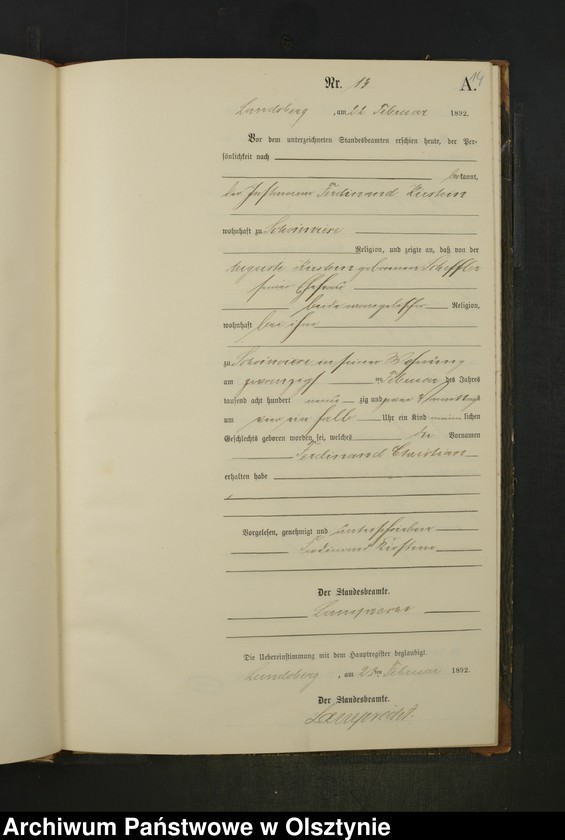 14
Nr. 13 A.
Landsberg, am 22 Februar 1892.
Vor dem unterzeichneten Standesbeamten erschien heute, der Per-
sönlichkeit nach
bekannt,
der Ferdinand
wohnhaft zu
Religion, und zeigte an, daß von der
Auguste geborenen Scheffler
seiner Ehefrau
beide evangelischer Religion,
wohnhaft bei ihm
zu in seiner Wohnung
am zwanzigsten Februar des Jahres
tausend acht hundert neun zig und zwei Vormittags
um ein halb Uhr ein Kind männlichen
Geschlechts geboren worden sei, welches die Vornamen
Ferdinand Christian
erhalten habe
Vorgelesen, genehmigt und unterschrieben
Ferdinand
Der Standesbeamte.
Lamprecht
Die Uebereinstimmung mit dem Hauptregister beglaubigt.
Landsberg, am Februar 1892.
Der Standesbeamte.
Lamprecht.
Archiwum Państwowe w Olsztynie